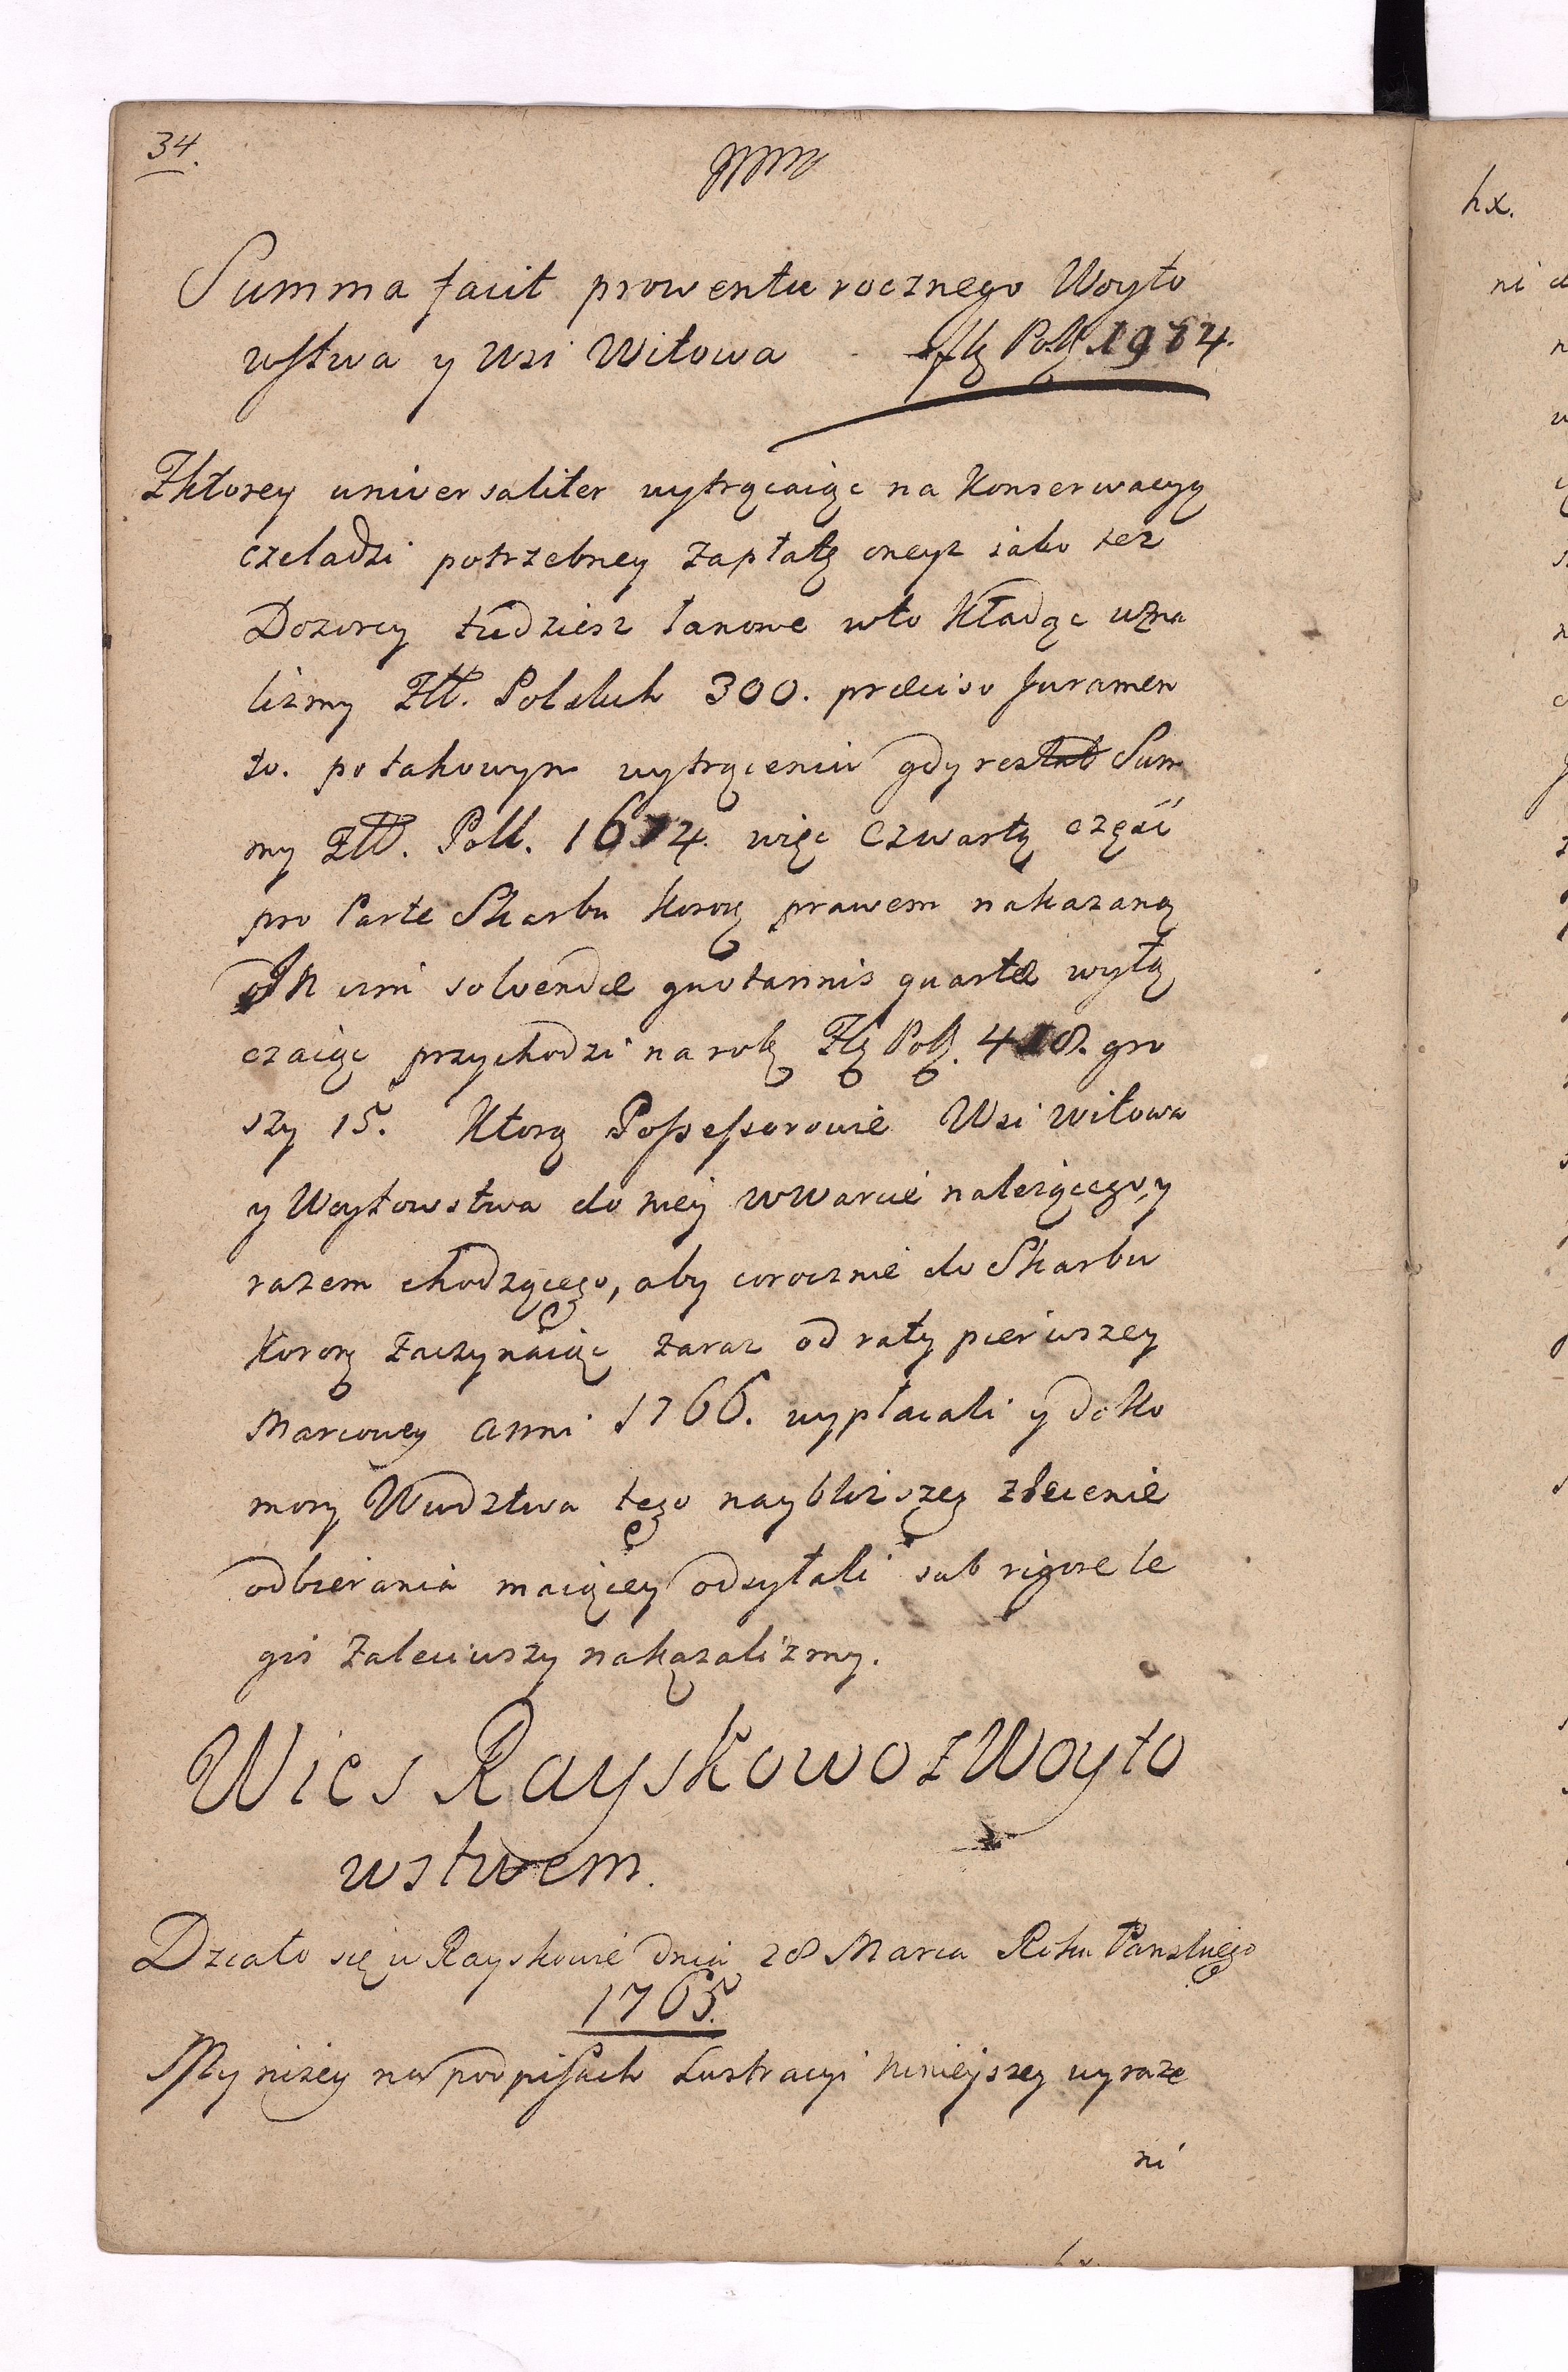 34.
Summa facit prowentu rocznego Woyto
wstwa y Wsi Witowa Złł Poll. 1974.
Zktorey universaliter wytrącaiąc na Konserwacyą
czeladzi potrzebney zapłatę oneyz iako tez
Dozorcy tudziesz łanowe wto Kładąc uzna
lizmy Złł. Polskich 300. præciso Juramen
to. po takowym wytrąceniu gdy restat Sum
my Złł. Poll. 1674. więc Czwartą częsć
pro Parte Skarbu Koroą prawem nakazaną
In vim solvendæ quotannis quartæ wyłą
czaiąc przychodzi na rok Złł Poll. 418. gro
szy 15. Ktorą Possessorowie Wsi Witowa
y Woytowstwa do niey wWarcie nalezącego, y
razem chodzącego, aby corocznie do Skarbu
Koroą zaczynaiąc zaraz od raty pierwszey
Marcowey anni 1766. wypłacali y do Ko
mory Wudztwa tego naybliszey zlecenie
odbierania maiącey odsyłali sub rigore le
gis zaleciwszy nakazalizmy.
Wies Rayskowo z Woyto
wstwem.
Działo się w Rayskowie dnia 28 Marca Roku Panskiego
1765.
My nizey na podpisach Lustracyi ninieyszey wyraze
ni
hx.
ni